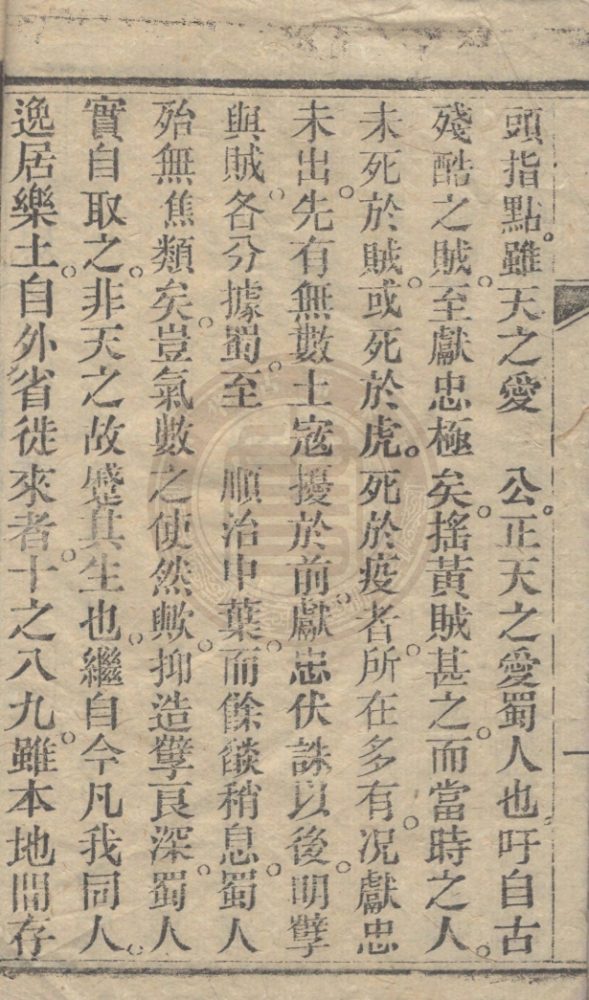 頭指點。雖天之愛　公。正天之愛蜀人也。吁自古
殘酷之賊。至獻忠極矣。搖黃賊甚之。而當時之人。
未死於賊。或死於虎。死於疫者。所在多有。况獻忠
未出。先有無數土寇擾於前。獻忠伏誅以後。明孽
與賊。各分據蜀。至　順治中葉。而餘燄稍息。蜀人
殆無焦類矣。豈氣數之使然歟。抑造孽良深。蜀人
實自取之。非天之故蹙其生也。繼自今凡我同人。
逸居樂土。自外省徙來者。十之八九。雖本地間存